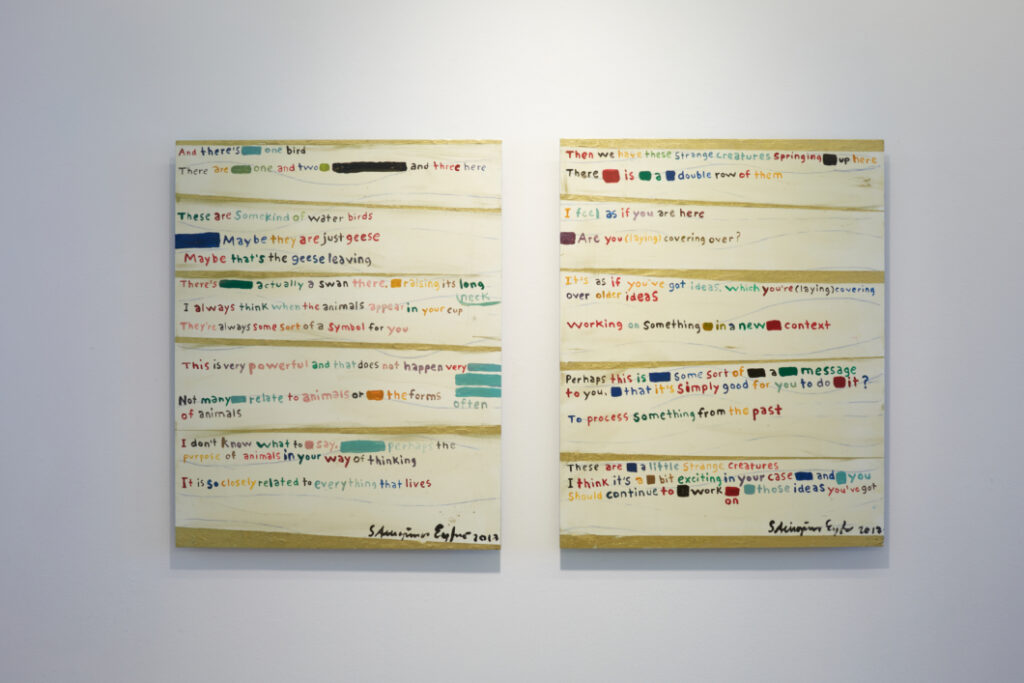 And there's one bird
There are one and two and three here
These are somekind of water birds
Maybe they are just geese
Maybe that's the geese leaving
There's actually a swan there. raising its long
neck
I always think when the animals appear in your cup
They're always some sort of a symbol for you
This is very powerful and that does not happen very
often
Not many relate to animals or the forms
of animals
I don't know what to say, perhaps the
purpose of animals in your way of thinking
It is so closely related to everything that lives
2017
Then we have these strange creatures springing up here
There is a double row of them
I feel as if you are here
Are you (laying) covering over?
It's as if you've got ideas, which you're (laying) covering
over older ideas
Working on something in a new context
Perhaps this is some sort of a message
to you, that it's simply good for you to do it?
To process something from the past
These are a little strange creatures
I think it's a bit exciting in your case and you
should continue to work those ideas you've got
on
2017